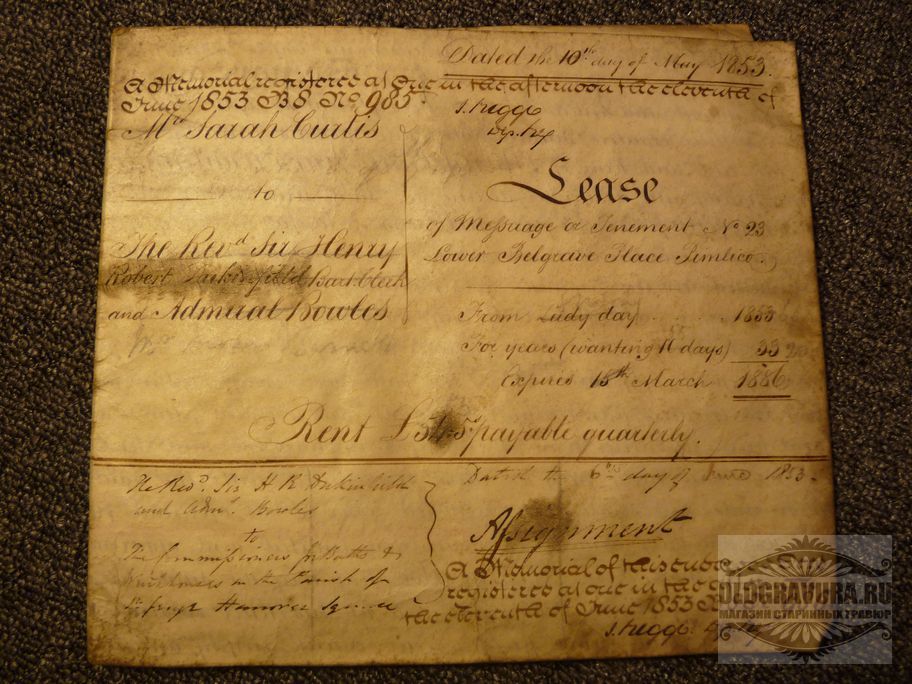 Dated the 10th day of May 1853.
A Memorial registered at One in the afternoon the eleventh of
June 1853 B8 No. 985.
Mrs Sarah Curtis
to
The Revd. Sir Henry
Robert Dukinfield Bart
and Admiral Bowles
Lease
of Messuage or Tenement No 23
Lower Belgrave Place Pimlico.
From Lady day 1853
For years (wanting 10 days) 33
Expires 15th March 1886
Rent payable quarterly.
The Revd. Sir H R Dukinfield
and Adml. Bowles
to
The Commissioners for Baths &
Washhouses in the Parish of
St George Hanover Square
Dated the 6th day of June 1853.
Assignment
A Memorial of this
registered at one in the
the eleventh of June 1853
OLDGRAVURA.RU
МАГАЗИН СТАРИННЫХ ГРАВЮР